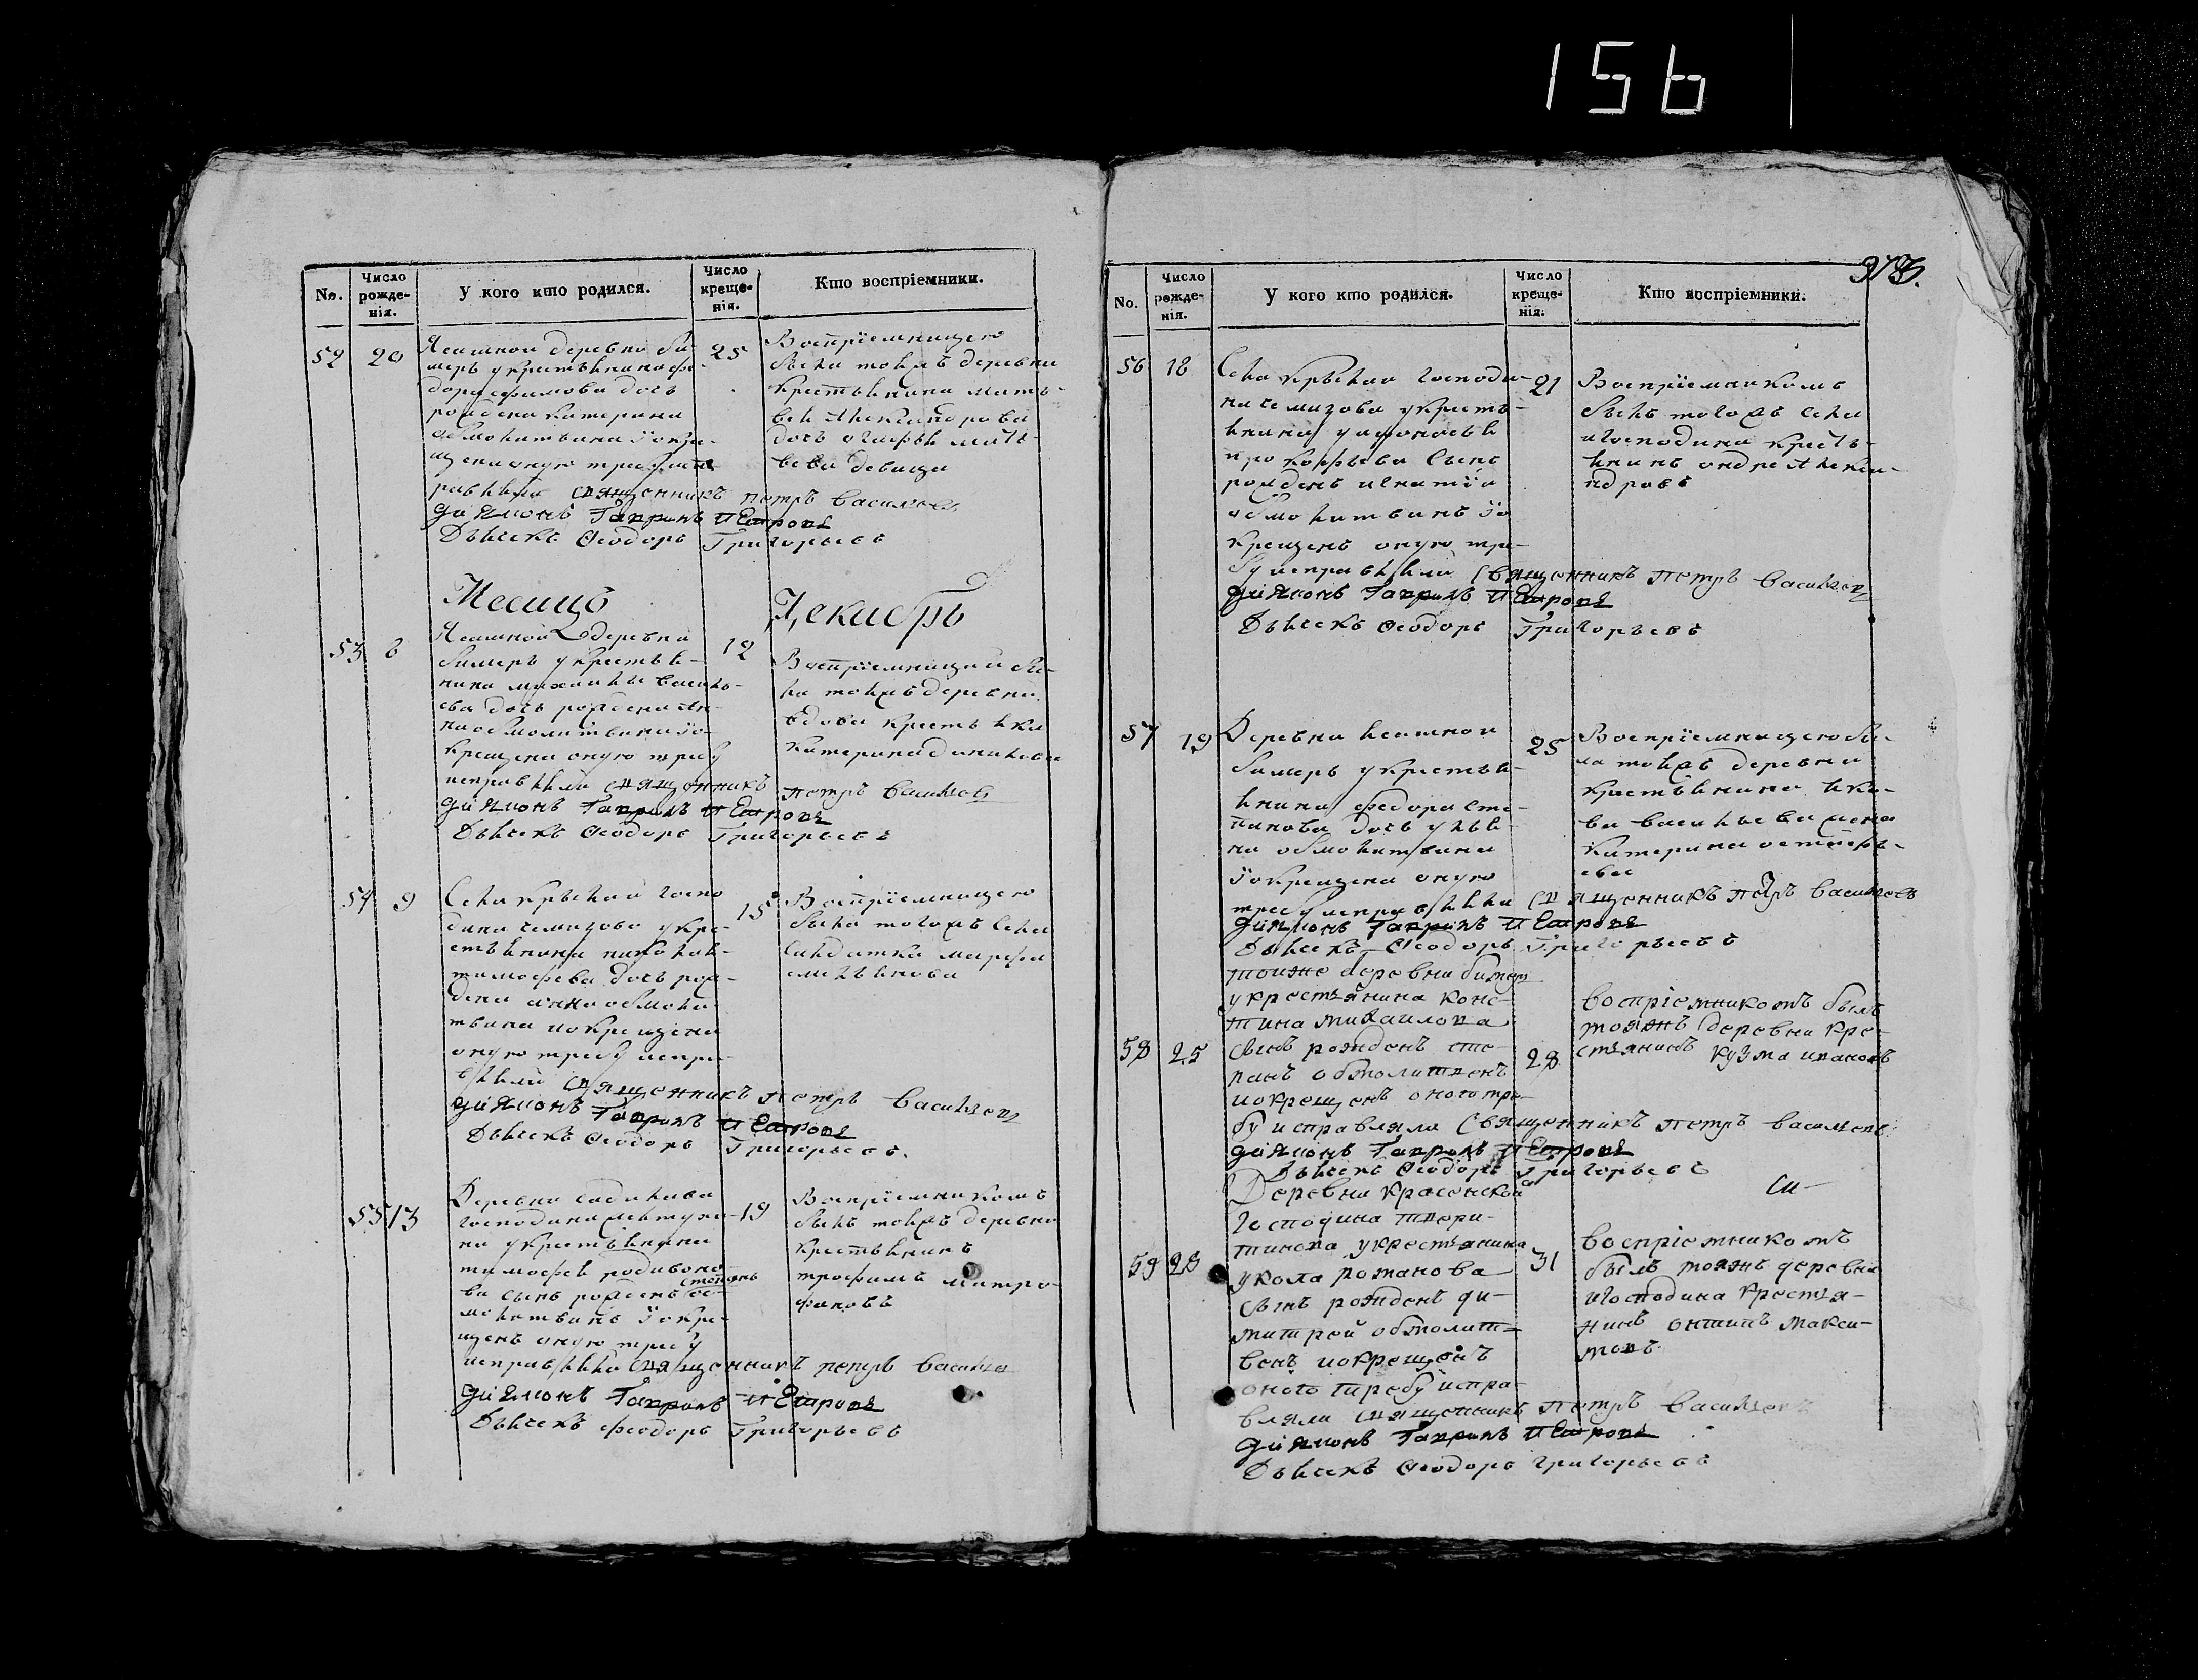 156
No.
Число рожде-нія.
У кого кто родился.
Число креще-нія.
Кто воспріемники.
52 20 25
Ясашной деревни Би-
меръ у крестьянина фе-
дора дочь
рождена катерина
обмолитвина і окре-
щена оную требу исп-
равляли священникъ петръ Василиевъ
діяконъ Гаврилъ Петровъ
Дьячекъ Ѳеодоръ Григорьевъ
Воспріемницею
была тояжъ деревни
крестьянина мат-
вея Александрова
дочь матв-
еева девица
Месяцъ Декабрь
53 6 12
Ясашной деревни
Бимеръ у крестья-
нина михаилы василь-
ева дочь рождена ан-
на обмолитвина і о-
крещена оную требу
исправляли священникъ петръ Василиевъ
діяконъ Гаврилъ Петровъ
Дьячекъ Ѳеодоръ Григорьевъ
Воспріемницей бы-
ла тояжъ деревни
вдова крестьянка
катерина данилова
54 9 15
Села госпо
дина у кре-
стьянина николая
тимофева дочь рож-
дена анна обмоли-
твина и окрещена
оную требу испра-
вляли священникъ петръ Василиевъ
діяконъ Гаврилъ Петровъ
Дьячекъ Ѳеодоръ Григорьевъ.
Воспріемницею
была тогожъ села
салдатка марфа
55 13 19
Деревни
господина
на у крестьянина
тимофея родионо-
степанъ
ва сынъ рожденъ об-
молитвинъ і окре-
щенъ оную требу
исправляли священникъ петръ Василиевъ
діяконъ Гаврилъ Петровъ
Дьячекъ феодоръ Григорьевъ
Воспріемникомъ
былъ тояжъ деревни
крестьянинъ
трофимъ митро-
фановъ
No.
Число рожде-нія.
У кого кто родился.
Число креще-нія.
Кто воспріемники.
56 18 21
Села господи-
на у кресть-
янина
прокофьева сынъ
рожденъ игнатій
обмолитвинъ іо
крещенъ оную тре-
бу исправляли Священникъ петръ Василиевъ
діяконъ Гаврилъ Петровъ
Дьячекъ Ѳеодоръ Григорьевъ
Воспріемникомъ
былъ тогожъ села
и господина кресть-
янинъ андре Алекса-
ндровъ
57 19 25
Деревни ясашной
Бимеръ у кресть-
янина федора сте-
панова дочь улья-
на обмолитвина
і окрещена оную
требу исправляли священникъ петръ Василиевъ
діяконъ Гаврилъ Петровъ
Дьячекъ Ѳеодоръ Григорьевъ
Воспріемницею бы-
ла тояжъ деревни
крестьянина яко-
ва васильева жена
катерина
58 25 28
тоиже деревни бимеръ
у крестьянина конс-
тина михаилова
сынъ рожденъ сте-
панъ обмолитвенъ
и окрещенъ оного тре-
бу исправляли Священникъ петръ Василиевъ
діяконъ Гаврилъ Петровъ
Дьячекъ Ѳеодоръ Григорьевъ
Воспріемникомъ былъ
тояжъ деревни кре-
стьянинъ кузма ивановъ
59 28 31
Деревни красонской
Господина
у крестьянина
романова
сынъ рожденъ ди-
митрей обмолит-
венъ и окрещенъ
оного требу испра-
вляли священникъ петръ Василиевъ
діяконъ Гаврилъ Петровъ
Дьячекъ Ѳеодоръ григорьевъ
Воспріемникомъ
былъ тояжъ деревни
и господина крестья-
нинъ антипъ макси-
мовъ